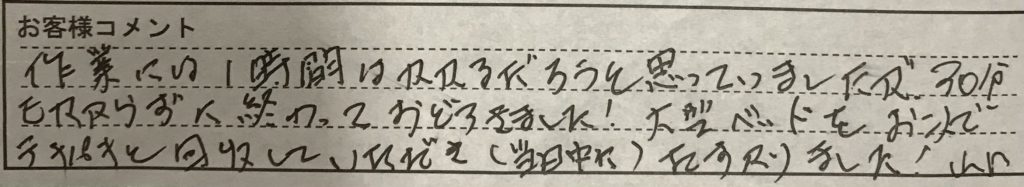 お客様コメント
作業には1時間はかかるだろうと思っていましたが、30分
もかからずに終わっておどろきました！大型ベッドをお二人で
テキパキと回収していただき（当日中に）たすかりました！